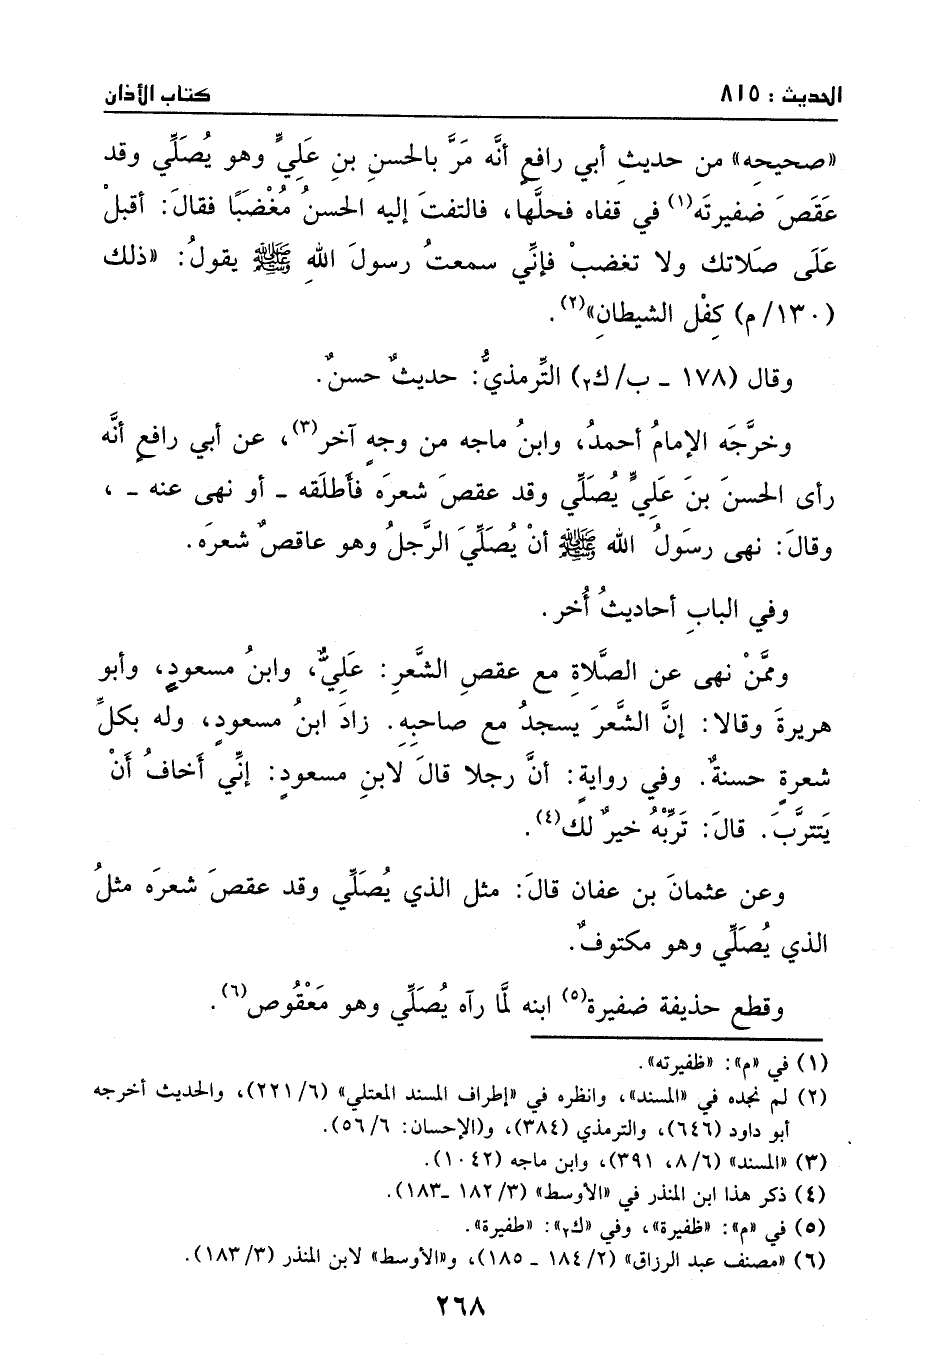 الحديث : ٨١٥
كتاب الأذان
«صحيحِه» من حديثِ أبي رافعٍ أنَّه مَرَّ بالحسنِ بنِ عَليٍّ وهو يُصَلِّي وقد
عَقَصَ ضفيرتَه(١) في قفاه فحلَّها، فالتفتَ إليه الحسنُ مُغْضَبًا فقالَ: أقبلْ
عَلَى صلَاتك ولا تغضبْ فإنِّي سمعتُ رسولَ اللهِ ﷺ يقولُ: «ذلك
(١٣٠/م) كِفْل الشيطانِ»(٢).
وقال (١٧٨ - ب/ك٢) التِّرمذيُّ: حديثٌ حسنٌ.
وخرَّجَه الإمامُ أحمدُ، وابنُ ماجه من وجهٍ آخر(٣)، عن أبي رافعٍ أنَّه
رأى الحسنَ بنَ عَليٍّ يُصَلِّي وقد عقصَ شعرَه فأطلَقه - أو نهى عنه - ،
وقالَ: نهى رسولُ الله ﷺ أنْ يُصَلِّيَ الرَّجلُ وهو عاقصٌ شعرَه.
وفي البابِ أحاديثُ أُخر.
وممَّنْ نهى عن الصَّلاةِ مع عقصِ الشَّعرِ: عَليٌّ، وابنُ مسعودٍ، وأبو
هريرةَ وقالا: إنَّ الشَّعرَ يسجدُ مع صاحبِهِ. زادَ ابنُ مسعودٍ، وله بكلِّ
شعرةٍ حسنةٌ. وفي روايةٍ: أنَّ رجلا قالَ لابنِ مسعودٍ: إنِّي أخافُ أنْ
يَتترَّبَ. قالَ: تَرِّبْهُ خيرٌ لك(٤).
وعن عثمانَ بن عفان قالَ: مثل الذي يُصَلِّي وقد عقصَ شعرَه مثلُ
الذي يُصَلِّي وهو مكتوفٌ.
وقطع حذيفة ضفيرة(٥) ابنه لمَّا رآه يُصَلِّي وهو مَعْقُوص(٦).
(١) في «م»: «ظفيرته».
(٢) لم نجده في «المسند»، وانظره في «إطراف المسند المعتلي» (٦/ ٢٢١)، والحديث أخرجه
أبو داود (٦٤٦)، والترمذي (٣٨٤)، و(الإحسان: ٦/ ٥٦).
(٣) «المسند» (٦/ ٨، ٣٩١)، وابن ماجه (١٠٤٢).
(٤) ذكر هذا ابن المنذر في «الأوسط» (٣/ ١٨٢ -١٨٣).
(٥) في «م»: «ظفيرة»، وفي «ك٢»: «طفيرة».
(٦) «مصنف عبد الرزاق» (٢/ ١٨٤ - ١٨٥)، و«الأوسط» لابن المنذر (٣/ ١٨٣).
٢٦٨